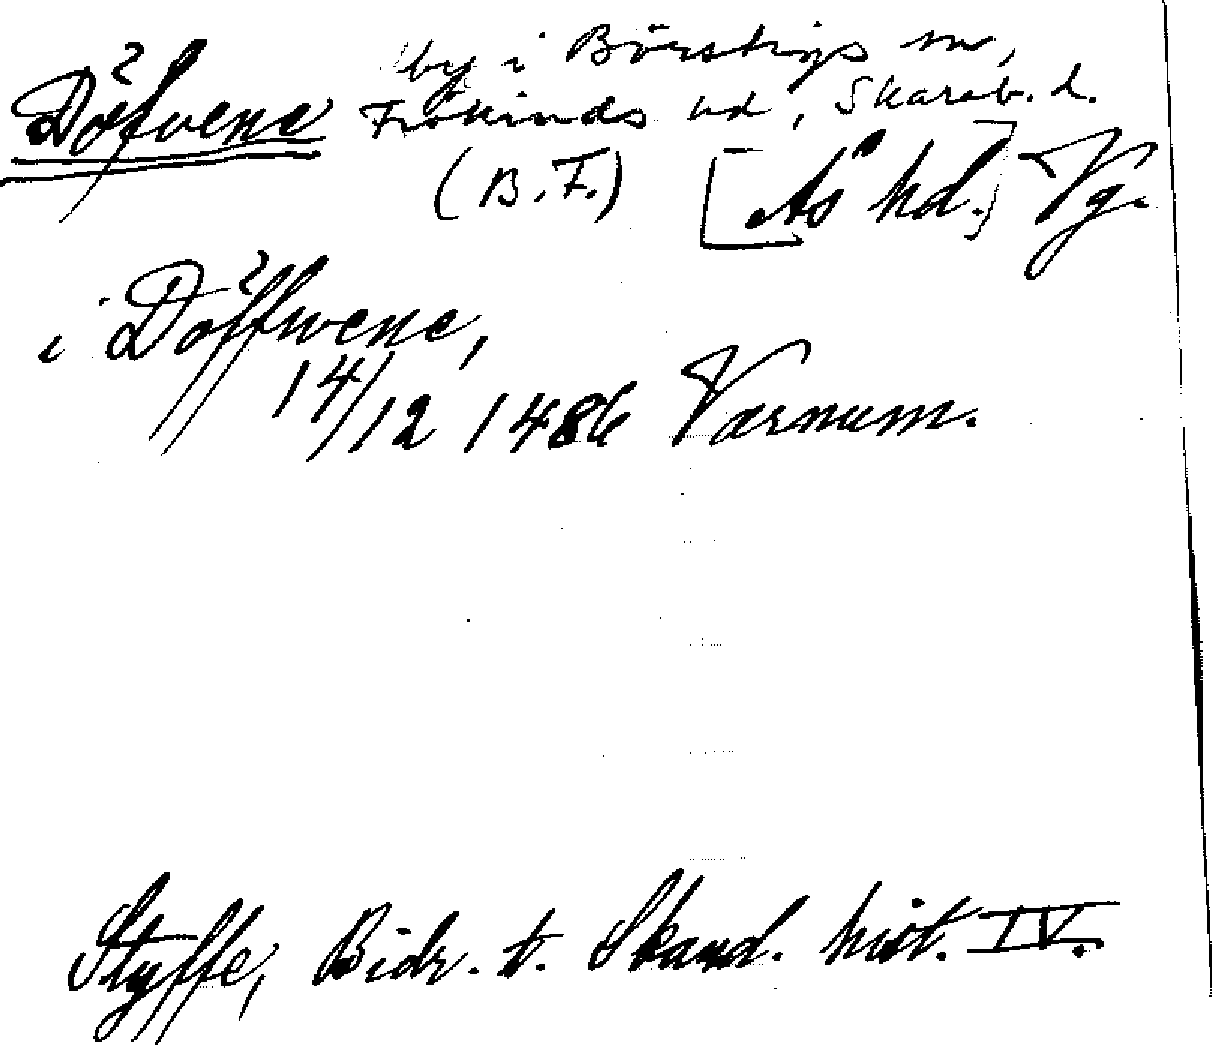 Döfvene by i Börstigs sn,
Frökinds hd, Skarab. d.
(B.F.) [Ås hd.] Vg.
i Döffwene,
14/12 1486 Værnum.
Styffe, Bidr. t. Skand. hist. IV.